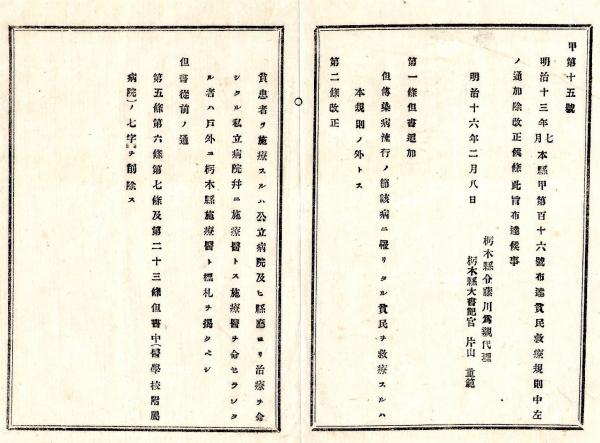 甲第十五號
明治十三年七月本縣甲第百十六號布達貧民救療規則中左
ノ通加除改正候條此旨布達候事
明治十六年二月八日
栃木縣令藤川爲親代理
栃木縣大書記官 片山 重範
第一條但書追加
但傳染病流行ノ節該病ニ罹リタル貧民ヲ救療スルハ
本規則ノ外トス
第二條改正
貧患者ヲ施療スルハ公立病院及ヒ縣廳ヨリ治療ヲ命
シタル私立病院幷ニ施療醫トス施療醫ヲ命セラレタ
ル者ハ戸外ニ栃木縣施療醫ト標札ヲ揭クベシ
但書從前ノ通
第五條第六條第七條及第二十三條但書中(醫學校附屬
病院)ノ七字ヲ削除ス